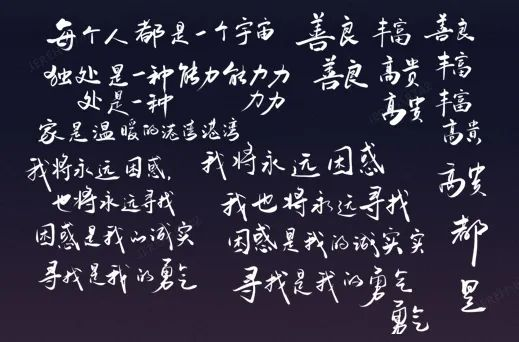 每个人都是一个宇宙
善良 丰富 善良
独处是一种能力能力力
善良 高贵 丰富
处是一种 力力
高贵 丰富
家是温暖的港湾港湾
高贵
我将永远困惑,
我将永远困惑
高贵
也将永远寻找
我也将永远寻找
都
困惑是我的诚实
困惑是我的诚实实
是
寻找是我的勇气
寻找是我的勇气
勇气